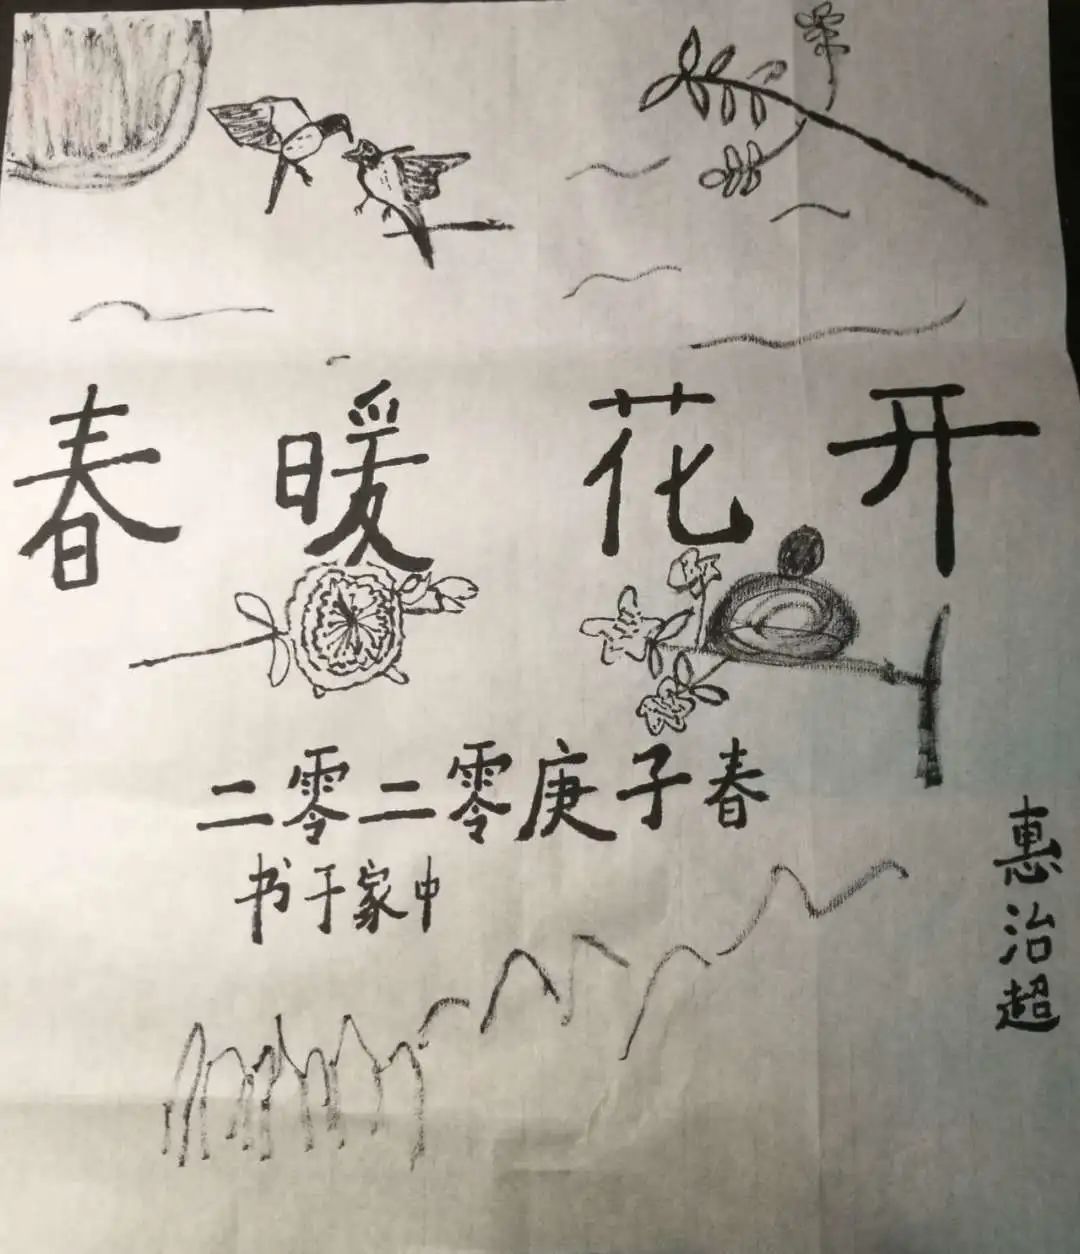 春暖花开
二零二零庚子春
书于家中
惠治超